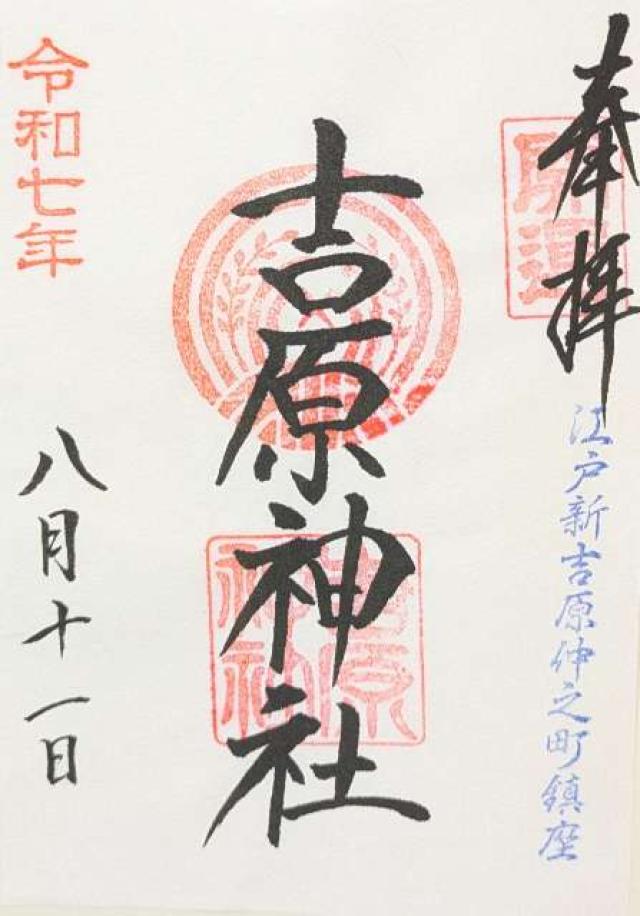 奉拝
江戸新吉原仲之町鎮座
吉原神社
吉原
神社
令和七年
八月十一日